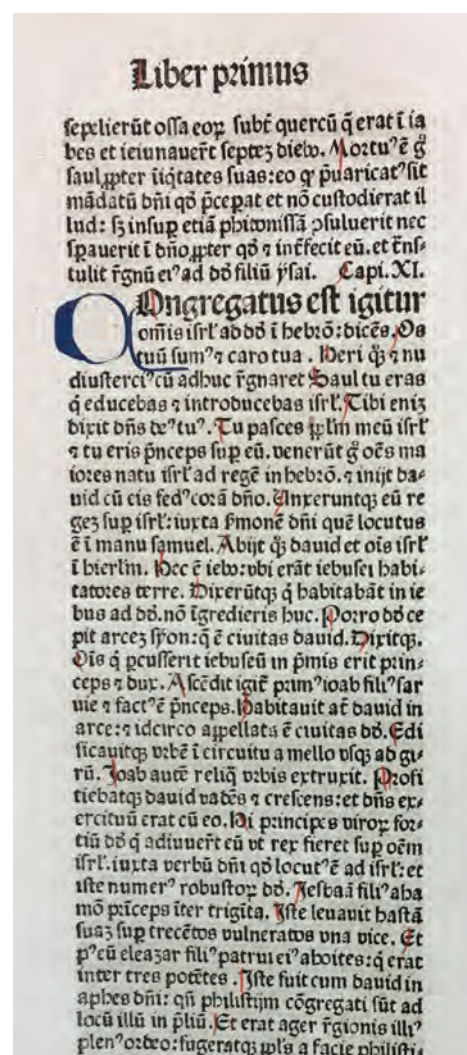 Liber primus
sepelierūt ossa eoꝝ subt̄ quercū q̄ erat ī ia
bes et ieiunauer̄t septeꝫ diebꝰ. Mortuꝰ ē g̊
saul ꝓpter īiq̄tates suas: eo ꝙ p̄uaricatꝰ sit
mādatū dn̄i qd̄ p̄ceꝑat et nō custodierat il
lud: sꝫ insuꝑ etiā phitonissā ↄsuluerit nec
sꝑauerit ī dn̄o ꝓpter qd̄ ⁊ int̄fecit eū. et tr̄nſ⸗
tulit r̄gnū eiꝰ ad dd̄ filiū ysai. Capi. XI.
COngregatus est igitur
om̄is isrł ad dd̄ ī hebrō: dicēs. Os
tuū sumꝰ ⁊ caro tua. Heri qꝫ ⁊ nu
diusterciꝰ cū adhuc r̄gnaret Saul tu eras
q̄ educebas ⁊ introducebas isrł. Tibi eniꝫ
dixit dn̄s deꝰ tuꝰ. Tu pasces ꝓp̄lm meū isrł
⁊ tu eris p̄nceps suꝑ eū. venerūt g̊ oēs ma
iores natu isrł ad regē in hebrō. ⁊ inijt da⸗
uid cū eis fedꝰ corā dn̄o. Unxeruntqꝫ eū re
geꝫ suꝑ isrł: iuxta ẜmonē dn̄i quē locutus
ē ī manu samuel. Abijt qꝫ dauid et oīs isrł
ī hierłm. Hec ē iebꝰ: vbi erāt iebusei habi⸗
tatores terre. Dixerūtqꝫ q̄ habitabāt in ie
bus ad dd̄. nō īgredieris huc. Porro dd̄ ce
pit arceꝫ syon: q̄ ē ciuitas dauid. Dixitqꝫ.
Oīs q̄ ꝑcusserit iebuseū in p̄mis erit prin⸗
ceps ⁊ dux. Ascēdit igit̄ primꝰ ioab filiꝰ sar
uie ⁊ factꝰ ē p̄nceps. Habitauit at̄ dauid in
arce: ⁊ idcirco appellata ē ciuitas dd̄. Edi
ficauitqꝫ vrbē ī circuitu a mello vsqꝫ ad gi⸗
rū. Joab autē reliq̄ vrbis extruxit. Profi
tiebatqꝫ dauid vadēs ⁊ crescens: et dn̄s ex⸗
ercituū erat cū eo. Hi principes viroꝝ for⸗
tiū dd̄ q̄ adiuuer̄t eū vt rex fieret suꝑ oēm
isrł. iuxta verbū dn̄i qd̄ locutꝰ ē ad isrł: et
iste numerꝰ robustoꝝ dd̄. Jesbaā filiꝰ aha
mō prīceps īter trigīta. Iste leuauit hastā
suaꝫ suꝑ trecētos vulneratos vna vice. Et
pꝰ eū eleazar filiꝰ patrui eiꝰ ahoites: q̄ erat
inter tres potētes. Iste fuit cum dauid in
aphes dn̄i: qn̄ philistijm cōgregati sūt ad
locū illū in p̄liū. Et erat ager r̄gionis illiꝰ
plenꝰ ordeo: fugeratqꝫ ꝓpls a facie philisti⸗